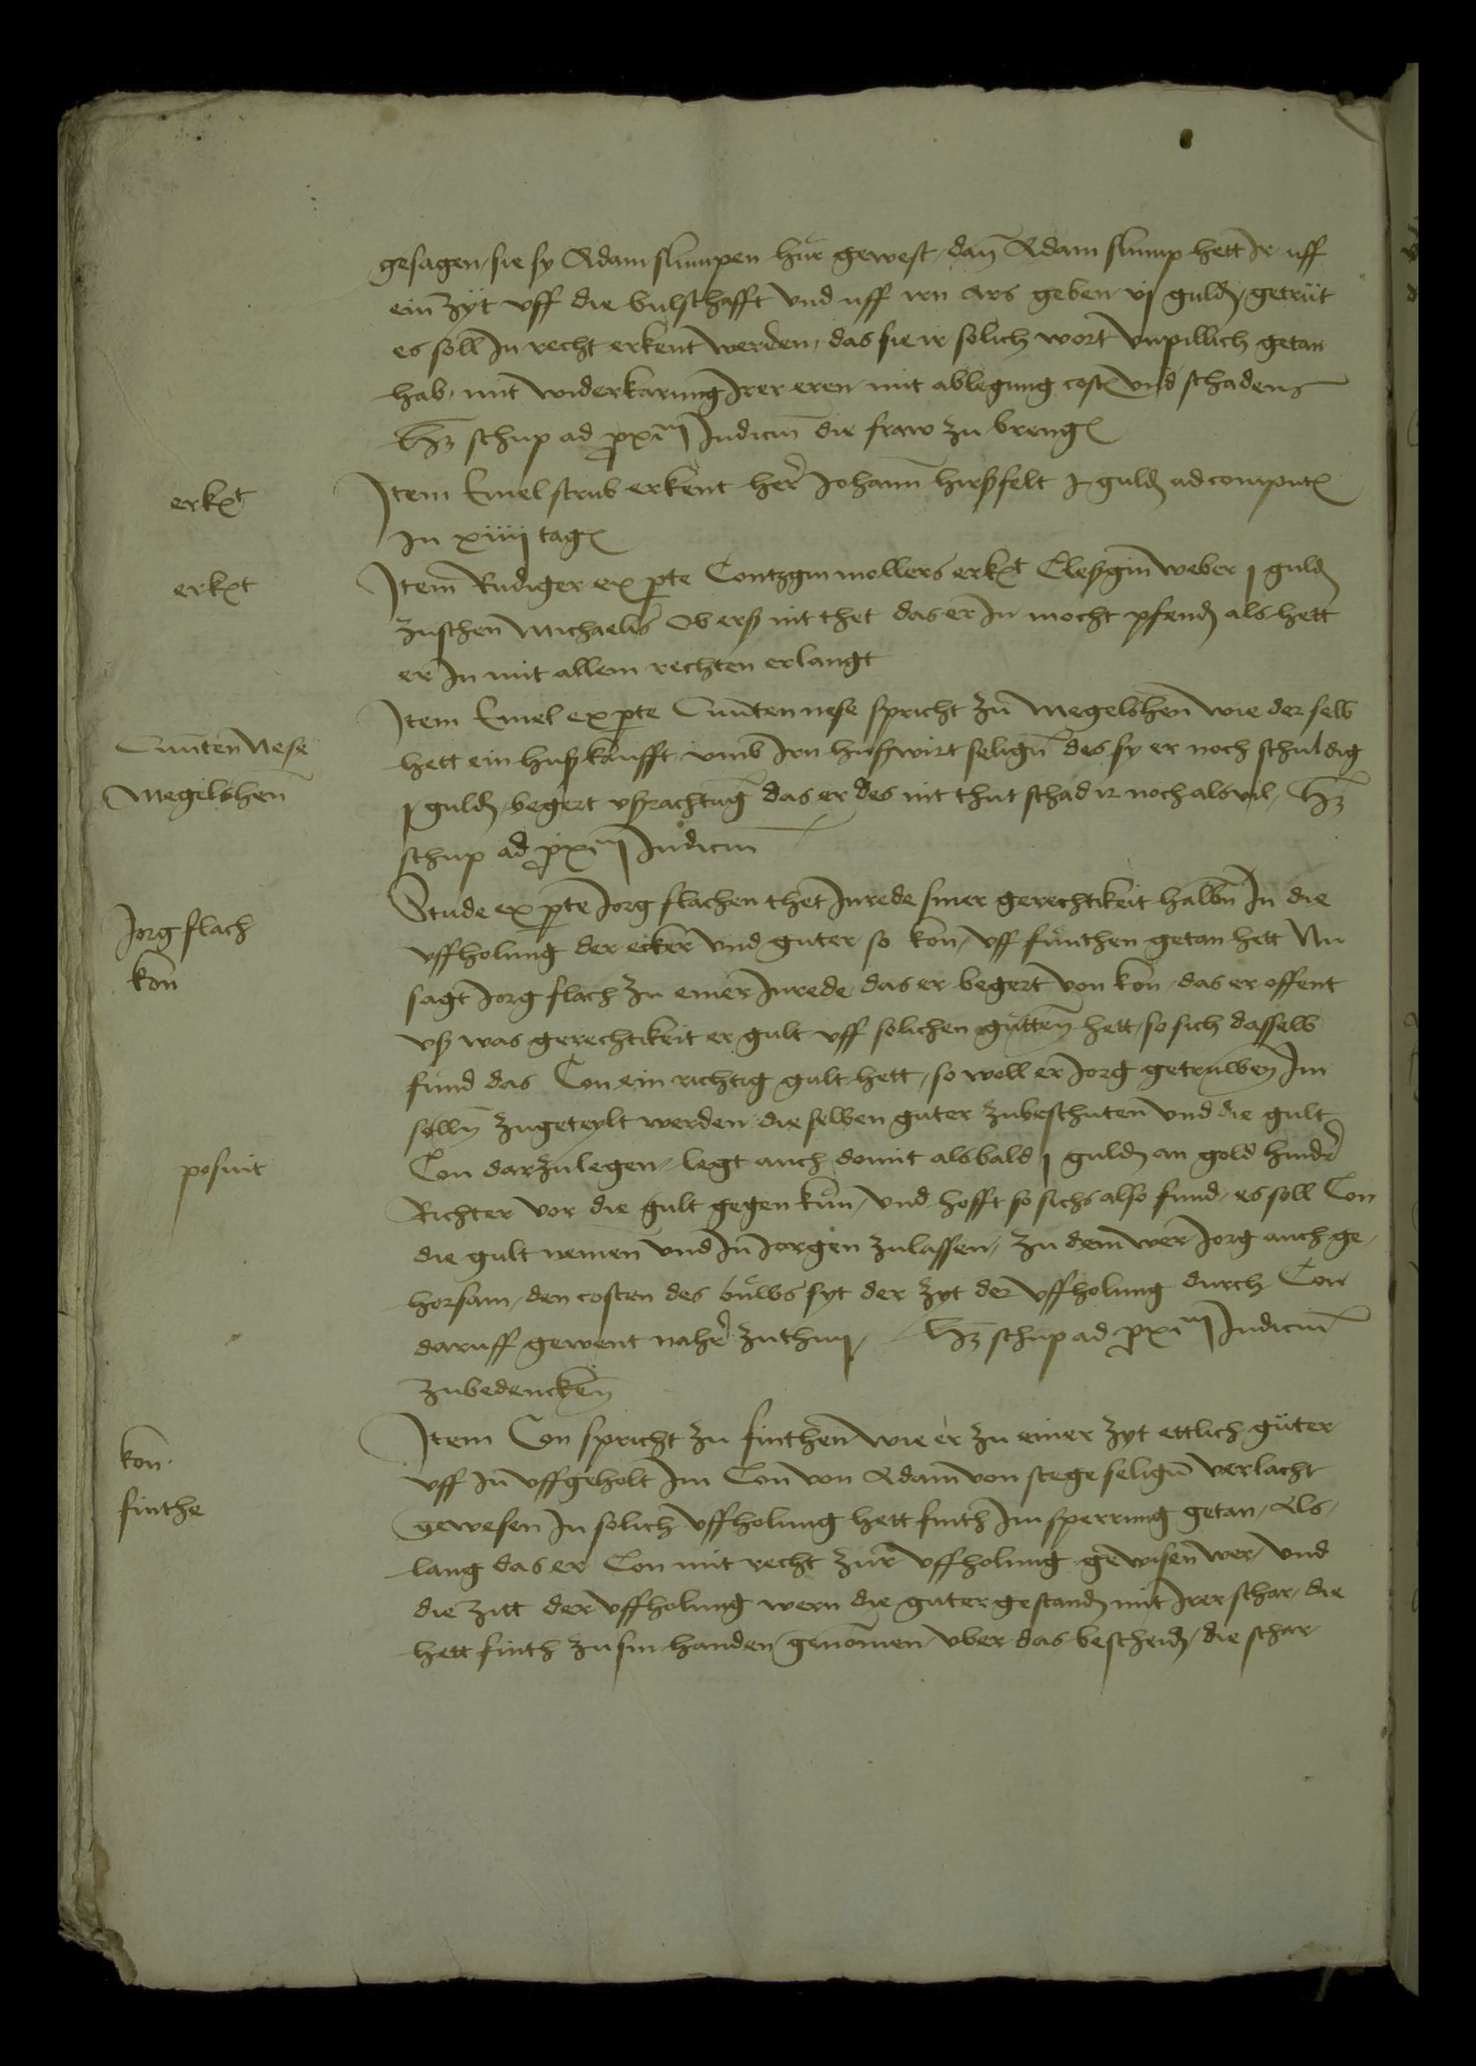 gesagen, sie sy Adam slumpen hur gewest, dan Adam slump hett Ir uff
ein zyt uff die bulschafft und uff irn ars geben vj guld, getrut
es soll In recht erkent werden, das sie ir solich wort unpillich getan
hab, mit widerkarung Irer eren mit ablegung cost und schadens
Hz schup ad prxim Iudicm die fraw zu breng
erkt
Item Emel strub erkent her Johann hirßfelt j guld ad comput
In xiiij tag
erkt
Item Rudiger ex pte Contzgin mollers erkt Cleßgin weber j guld
zuschen Michaelis Ob erß nit thet das er In mocht pfend als hett
er In mit allem rechten erlangt
Cunten Nese
Megelßhen
Item Emel ex pte Cunten nese spricht zu Megelßhen wie derselb
hett ein huß kaufft umb Irn hußwirt seligen des sy er noch schuldig
j guld, begert ußrachtung das er des nit thut schad ir noch als vil, Hz
schup ad prxim Iudicm
Jorg flach
kon
Stude ex pte Jorg flachen thet Inrede siner gerechtikeit halbn In die
uffholung der ecker und guter so kon, uff finthen getan hett Nu
sagt Jorg flach zu einer Inrede das er begert von kon, das er offent
uß was gerechtikeit er gult uff solichen gutten hett, so sich dasselb
fund das Con ein richtig gult hett, so woll er Jorg getruwen Im
solln zugeteylt werden die selben guter zubeschuten und die gult
posuit
Con darzulegen, legt auch domit alsbald j guld an gold hinder
Richter vor die gult gegen kun, und hofft so sichs also fund, es soll Con
die gult nemen und In Jorgen zulassen, zu dem wer Jorg auch ge,
horsam, den costen des buws syt der zyt der uffholung durch Con
daruff gewent naher zuthun, Hz schup ad prxim Iudicm
zubedencken
kon
finthe
Item Con spricht zu finthen wie er zu einer zyt ettlich guter
uff In uffgeholt Im Con von Adam von stege seligen verlacht
gewesen In solich uffholung hett finth Im sperrung getan, Als,
lang das er Con mit recht zur uffholung gewisen wer, und
die zitt der uffholung wern die guter gestand mit Irer schar, die
hett finth zu sin handen genomen uber das bescheid, die schar